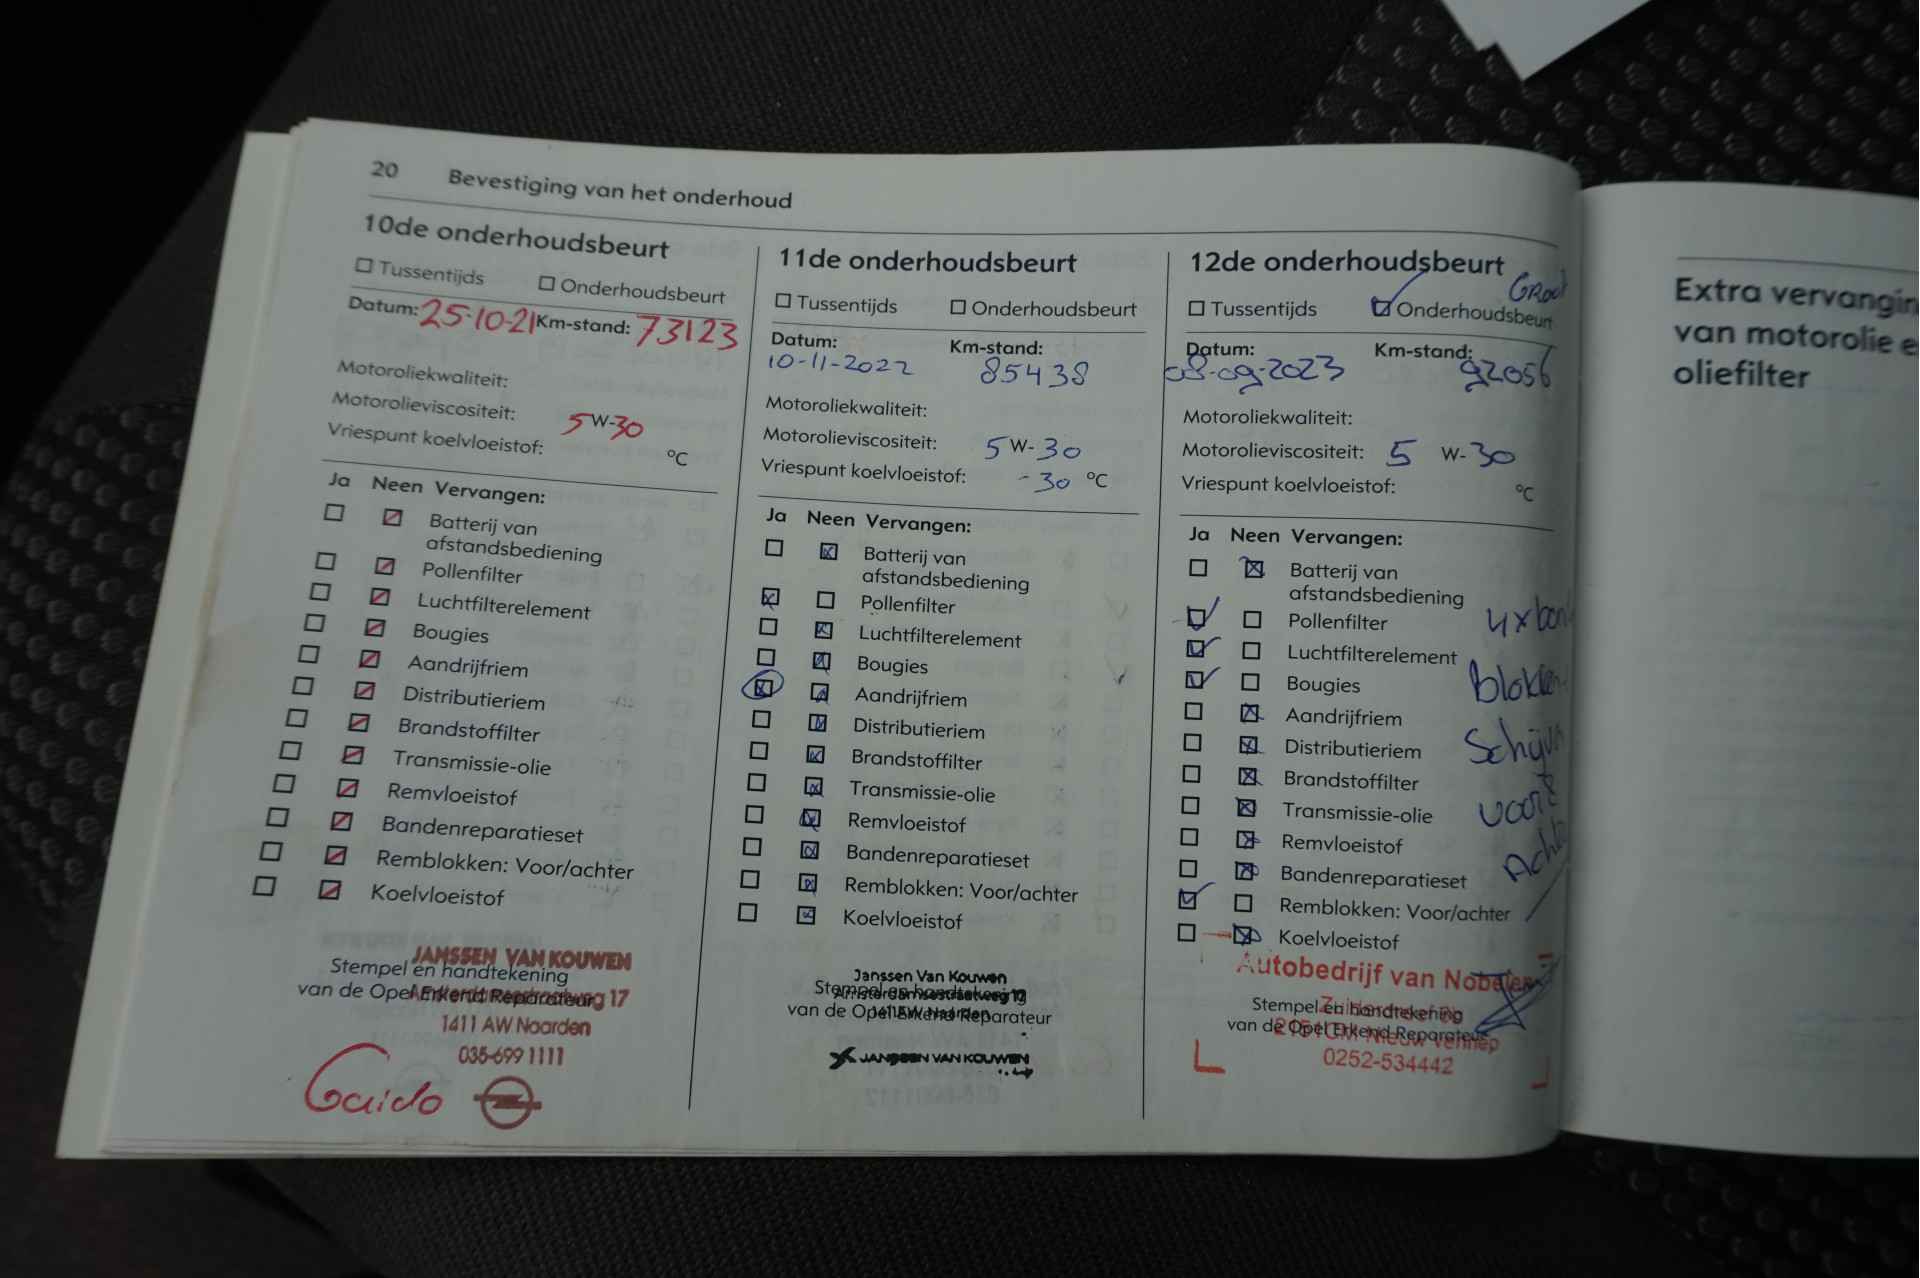 20 Bevestiging van het onderhoud
10de onderhoudsbeurt
Tussentijds Onderhoudsbeurt
Datum: 25-10-21 Km-stand: 73123
Motoroliekwaliteit:
Motorolieviscositeit: 5 W-30
Vriespunt koelvloeistof: °C
Ja Neen Vervangen:
Batterij van
afstandsbediening
Pollenfilter
Luchtfilterelement
Bougies
Aandrijfriem
Distributieriem
Brandstoffilter
Transmissie-olie
Remvloeistof
Bandenreparatieset
Remblokken: Voor/achter
Koelvloeistof
JANSSEN VAN KOUWEN
Stempel en handtekening
van de Opel Erkend Reparateur
17
1411 AW Naarden
035-699 1111
Guido
11de onderhoudsbeurt
Tussentijds Onderhoudsbeurt
Datum: Km-stand:
10-11-2022 85438
Motoroliekwaliteit:
Motorolieviscositeit: 5 W-30
Vriespunt koelvloeistof: -30 °C
Ja Neen Vervangen:
Batterij van
afstandsbediening
Pollenfilter
Luchtfilterelement
Bougies
Aandrijfriem
Distributieriem
Brandstoffilter
Transmissie-olie
Remvloeistof
Bandenreparatieset
Remblokken: Voor/achter
Koelvloeistof
Janssen Van Kouwen
Stempel en handtekening
Amsterdamsestraatweg 17
van de Opel Erkend Reparateur
1411 AW Naarden
JANSSEN VAN KOUWEN
12de onderhoudsbeurt
Groot
Tussentijds Onderhoudsbeurt
Datum: Km-stand:
08-09-2023 92056
Motoroliekwaliteit:
Motorolieviscositeit: 5 W-30
Vriespunt koelvloeistof: °C
Ja Neen Vervangen:
Batterij van
afstandsbediening
Pollenfilter
Luchtfilterelement
Bougies
Aandrijfriem
Distributieriem
Brandstoffilter
Transmissie-olie
Remvloeistof
Bandenreparatieset
Remblokken: Voor/achter
Koelvloeistof
4x
Blokken
voor
Autobedrijf van Nobelen
Stempel en handtekening
van de Opel Erkend Reparateur
Nieuw Vennep
0252-534442
Extra vervangin
van motorolie e
oliefilter